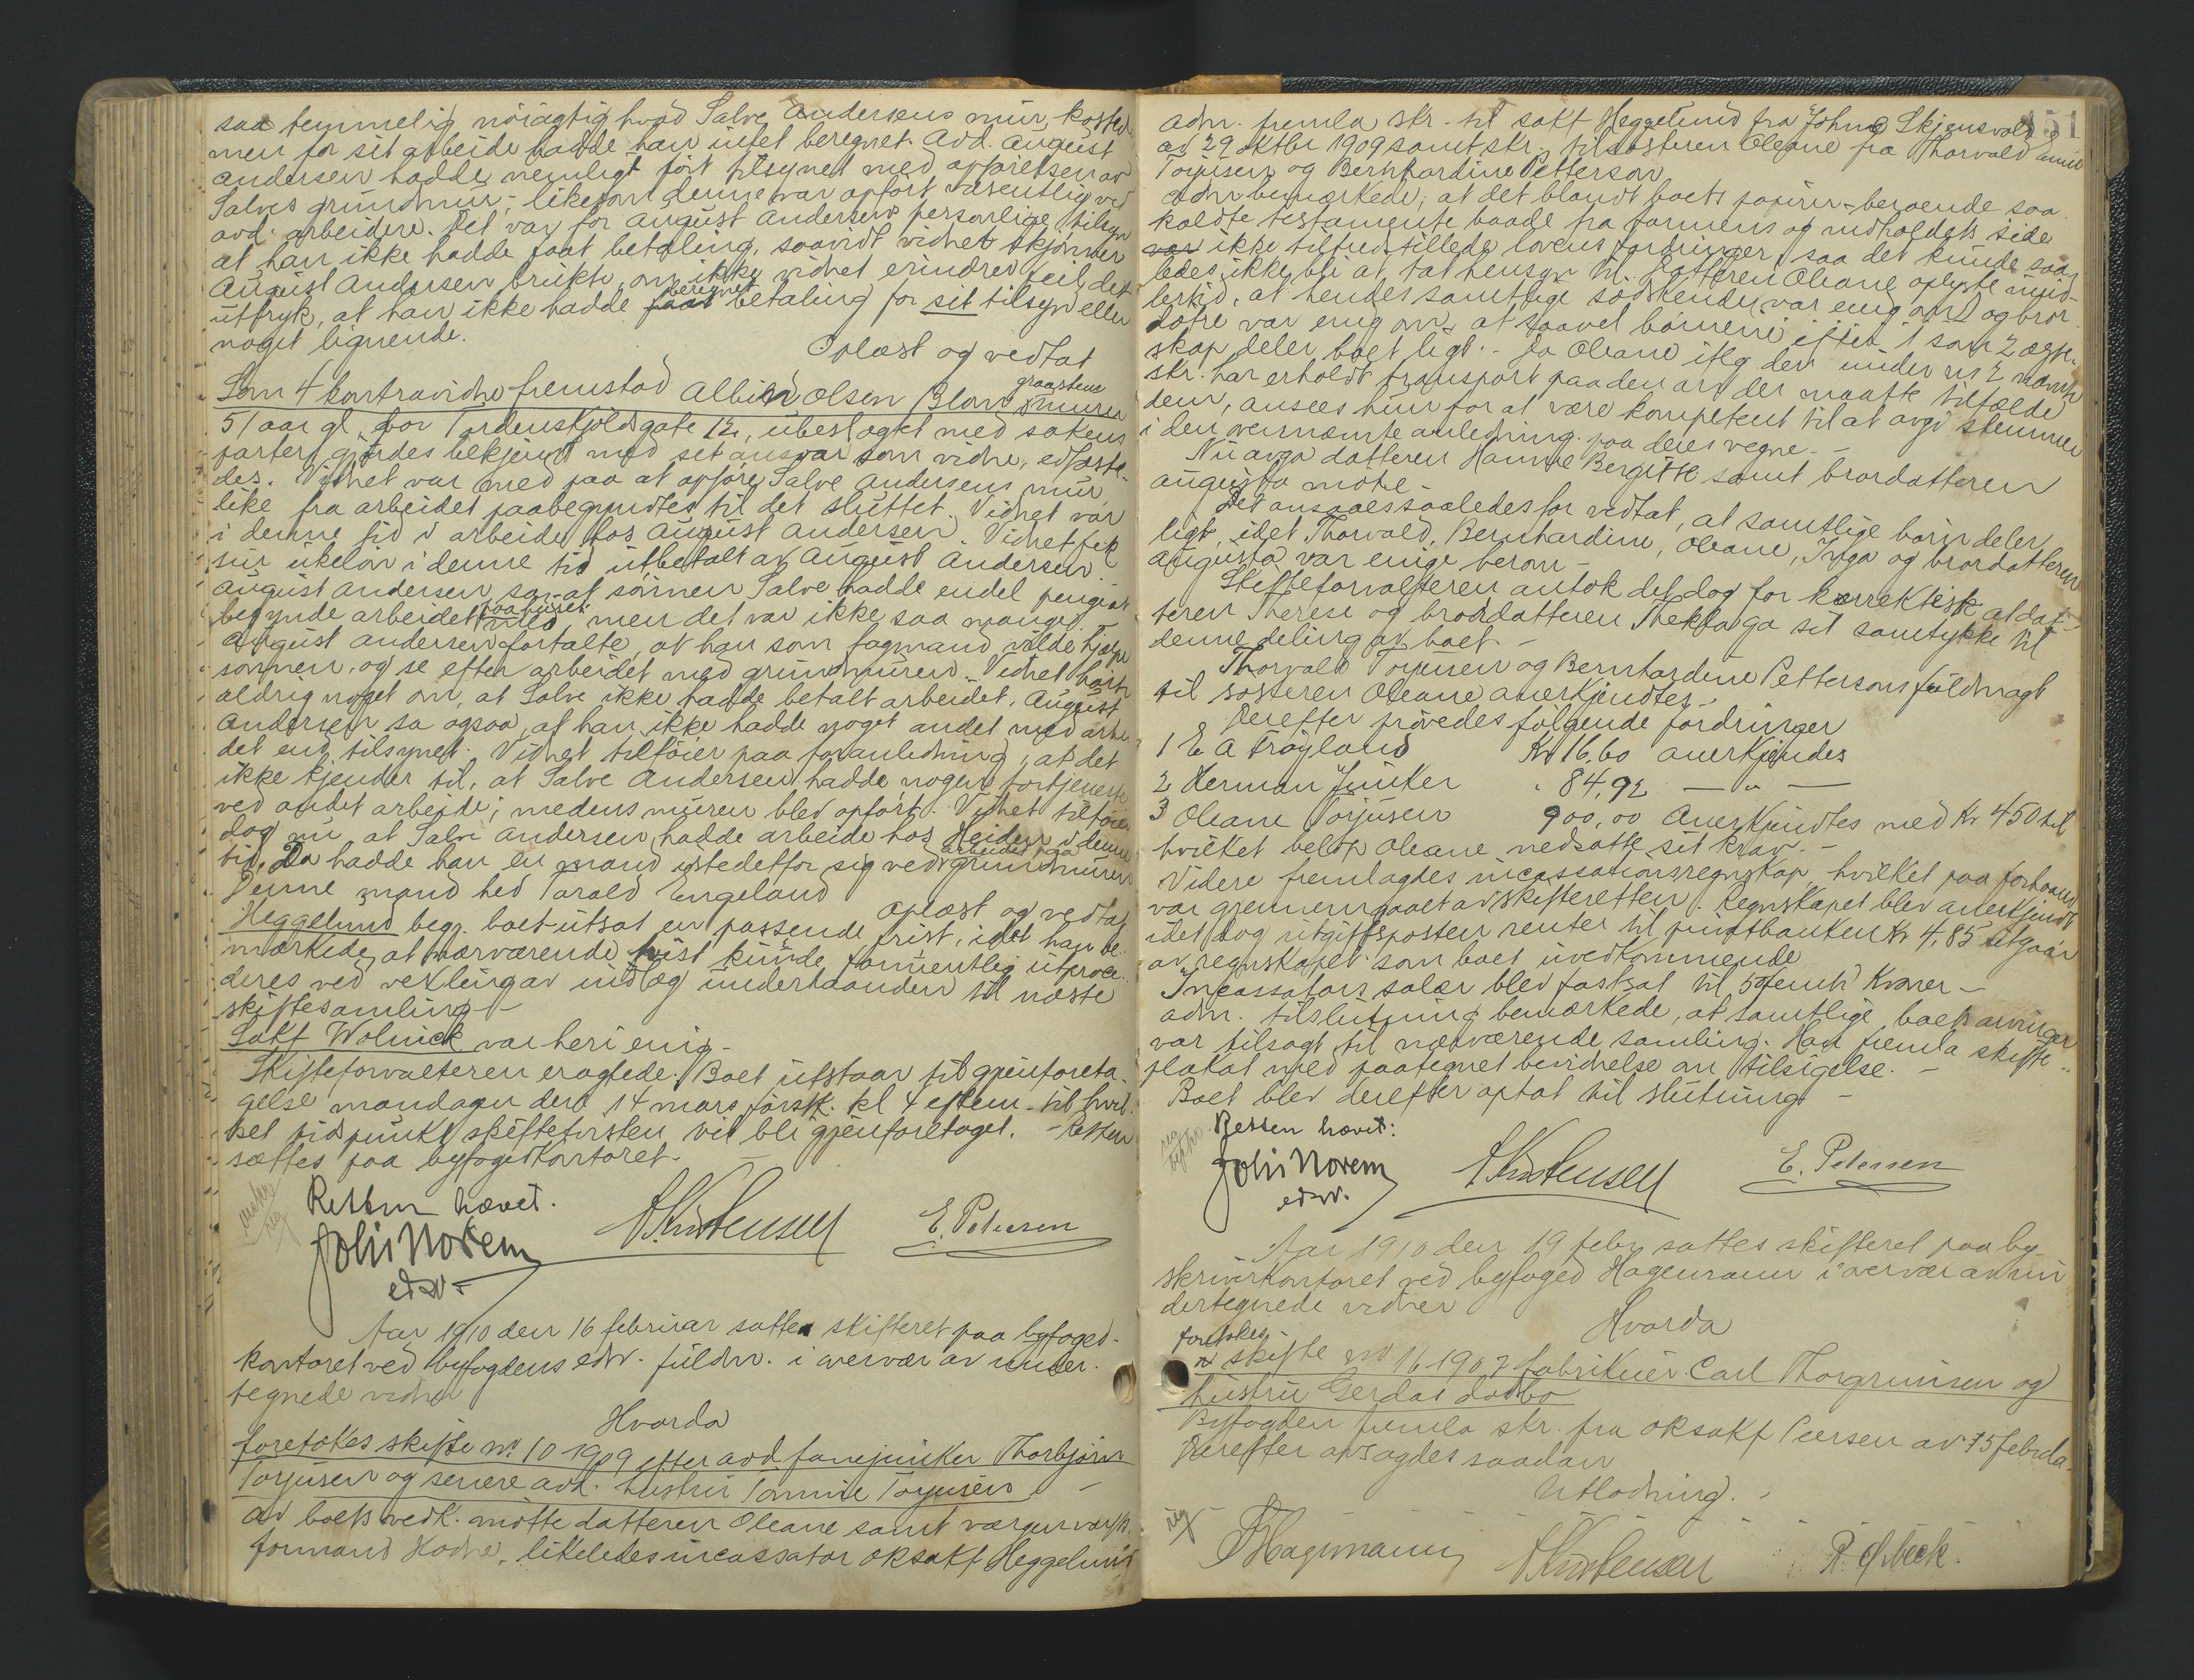 saa temmelig nöiagtig hvad Salve Andersens mur, kostet
men for sit arbeide hadde han intet beregnet. Avd. August
Andersen hadde nemligt fört tilsynet med opförelsen av
Salves grundmur, likesom denne var opfört væsentlig ved
avd. arbeidere. Det var for August Andersens personlige tilsyn
at han ikke hadde faat betaling, saavidt vidnet skjönner
August Andersen brukte, om ikke vidnet erindrer feil, det
uttryk, at han ikke hadde faat beregnet betaling for sit tilsyn eller
noget lignende.
Oplæst og vedtat
Som 4 kontravidne fremstod Albin Olsen Blom graastensmurer
51 aar gl, bor Tordenskjoldsgate 12, ubeslegtet med sakens
parter, gjördes bekjendt med set ansvar som vidne, edfæste-
des. Vidnet var med paa at opföre Salve Andersens mur,
like fra arbeidet paabegyndtes til det sluttet. Vidnet var
i denne tid i arbeide hos August Andersen. Vidnet fek
sin ukelön i denne tid utbetalt av August Andersen.
August Andersen sa, at sönnen Salve hadde endel penge at
begynde arbeidet med paa huset men det var ikke saa mange.
August Andersen fortalte, at han som fagmand vilde hjælpe
sönnen og se efter arbeidet med grundmuren. Vidnet hörte
aldrig noget om, at Salve ikke hadde betalt arbeidet. August
Andersen sa ogsaa, at han ikke hadde noget andet med arbei
det end tilsynet. Vidnet tilföier paa foranledning, at det
ikke kjender til, at Salve Andersen hadde nogen fortjeneste
ved andet arbeide, medens muren blev opfört. Vidnet tilföier
dog nu at Salve Andersen hadde arbeide hos Heiden i denne
tid. Da hadde han en mand istedetfor sig ved arbeidet paa grundmuren
Denne mand hed Tarald Engeland
Oplæst og vedtat
Heggelund begj. boet utsat en passende frist, idet han be-
mærkede, at nærværende tvist kunde formentlig utproce-
deres ved vexling av indlæg underhaanden til næste
skiftesamling.
Sakf Wolnick var heri enig-
Skifteforvalteren eragtede: Boet utstaar til gjenforeta-
gelse mandagen den 14 mars förstk. kl 4 efterm. til hvil-
ket tidspunkt skifteforsten vil bli gjenforetaget. - Retten
sættes paa byfogedkontoret.
Retten hævet.
Johs Norem
edsv.
A. Kristensen
E. Petersen
Aar 1910 den 16 februar sattes skifteret paa byfoged-
kontoret ved byfogdens edsv. fuldm. i overvær av under-
tegnede vidner
Hvorda
foretokes skifte no 10 1909 efter avd fanejunker Thorbjörn
Torjusen og senere avd. hustru Tomine Torjusen
Av boets vedk. mötte datteren Oleane samt værgeraads
formand Hodne, likeledes incassator oksakf Heggelund
151
Adm. fremla skr. til sakf Heggelund fra John Skjensvold
av 29 oktbr 1909 samt skr. til sösteren Oleane fra Thorvald Emil
Torjusen og Bernhardine Petterson
Adm bemærkede, at det blandt boets papirer beroende saa
kaldte testamente baade fra formens og indholdets side
var ikke tilfredstillede lovens fordringer, saa det kunde saa
ledes ikke bli at tat hensyn til. Datteren Oleane oplyste imid-
lertid, at hendes samtlige södskende var enig om og bror
dötre var enig om, at saavel börnene efter 1 som 2 ægte-
skap deler boet ligt. - Da Oleane iflg den under no 2 nævnte
skr. har erholdt transport paa den arv der maatte tilfalde
dem, ansees hun for at være kompetent til at avgi stemmer
i den nærnævnte anledning paa deres vegne.-
Nu avga datteren Hanne Bergitte samt brordatteren
Augusta möte-
Det ansaaes saaledes for vedtat, at samtlige barn deler
ligt, idet Thorvald, Bernhardine, Oleane, Inga og brordatteren
Augusta var enige herom -
Skifteforvalteren antok det dog for korrektest at dat-
teren Therese og brordatteren Thekla ga sit samtykke til
denne deling av boet -
Thorvald Torjusen og Bernhardine Pettersons fuldmagt
til sösteren Oleane anerkjendtes.
Derefter prövedes fölgende fordringer
1 E A Fröyland Kr 16,60 anerkjendes
2 Herman Junker " 84,92 — " —
3 Oleane Torjusen 900,00 Anerkjendtes med Kr 450 til
hvilket belöp Oleane nedsatte sit krav.-
Videre fremlagdes incassationsregnskap, hvilket paa forhaand
var gjennemgaaet av skifteretten. Regnskapet blev anerkjendt
idet dog utgiftsposten renter til privatbanken Kr 4,85 utgaar
av regnskapet som boet uvedkommende
Incassators salær blev fastsat til 50 femti Kroner-
Adm. tilslutning bemærkede, at samtlige boets arvinger
var tilsagt til nærværende samling. Han fremla skifte-
plakat med paategnet bevidnelse om tilsigelse. -
Boet blev derefter optat til slutning -
Retten hævet:
Johs Norem
edsv.
A. Kristensen
E. Petersen
Aar 1910 den 19 febr sattes skifteret paa by-
skriverkontoret ved byfoged Hagemann i overvær av un
dertegnede vidner
Hvorda
foretokes
skifte no 16 1907 fabrikeier Carl Thorgrimsen og
hustru Gerdas dödbo
Byfogden fremla skr. fra oksakf Peersen av 15 febr da.
Derefter avsagdes saadan
Utlodning.
reg
Hagemann
A. Kristensen
R. Ørbeck.